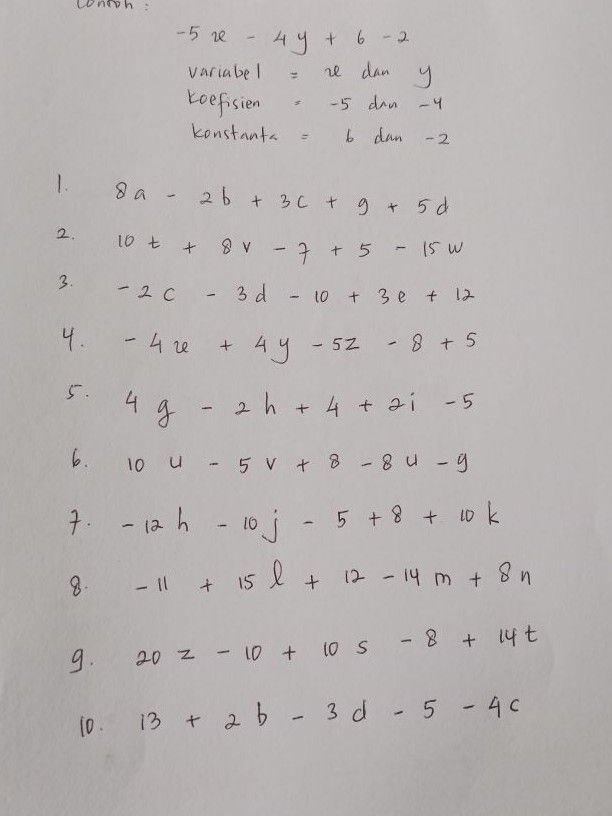 Contoh :
-5x - 4y + 6 - 2
variabel = x dan y
koefisien = -5 dan -4
konstanta = 6 dan -2
1. 8a - 2b + 3c + 9 + 5d
2. 10t + 8v - 7 + 5 - 15w
3. -2c - 3d - 10 + 3e + 12
4. -4x + 4y - 5z - 8 + 5
5. 4g - 2h + 4 + 2i - 5
6. 10u - 5v + 8 - 8u - 9
7. -12h - 10j - 5 + 8 + 10k
8. -11 + 15l + 12 - 14m + 8n
9. 20z - 10 + 10s - 8 + 14t
10. 13 + 2b - 3d - 5 - 4c